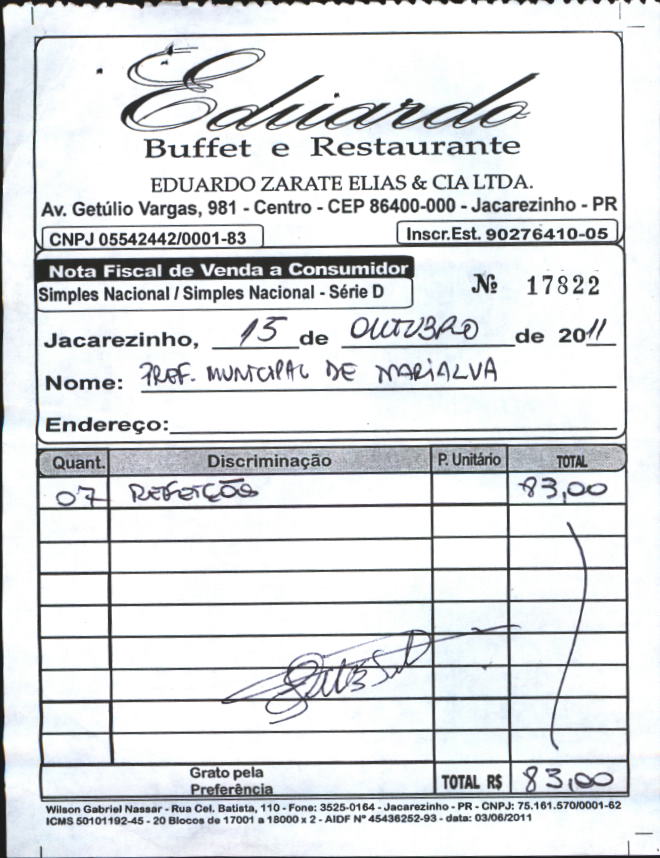 Eduardo
Buffet e Restaurante
EDUARDO ZARATE ELIAS & CIA LTDA.
Av. Getúlio Vargas, 981 - Centro - CEP 86400-000 - Jacarezinho - PR
CNPJ 05542442/0001-83 Inscr.Est. 90276410-05
Nota Fiscal de Venda a Consumidor
Simples Nacional / Simples Nacional - Série D Nº 17822
Jacarezinho, 15 de OUTUBRO de 2011
Nome: PREF. MUNICIPAL DE MARIALVA
Endereço:
Quant. Discriminação P. Unitário TOTAL
07 REFEIÇÕES 83,00
Grato pela
Preferência TOTAL R$ 83,00
Wilson Gabriel Nassar - Rua Cel. Batista, 110 - Fone: 3525-0164 - Jacarezinho - PR - CNPJ: 75.161.570/0001-62
ICMS 50101192-45 - 20 Blocos de 17001 a 18000 x 2 - AIDF Nº 45436252-93 - data: 03/06/2011